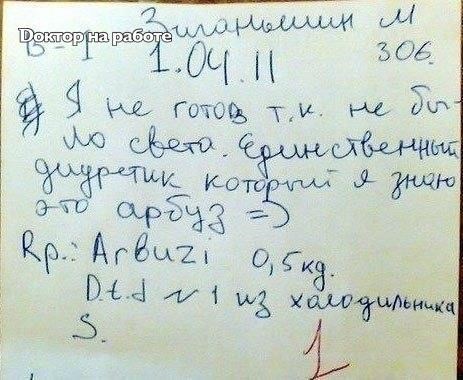 Доктор на работе
Зиганьшин М
В-1
1.04.11
306.
Я не готов т.к. не бы-
ло света. Единственный
диуретик который я знаю
это арбуз =)
Rp.: Arbuzi 0,5кд.
D.t.d N 1 из холодильника
S.
1